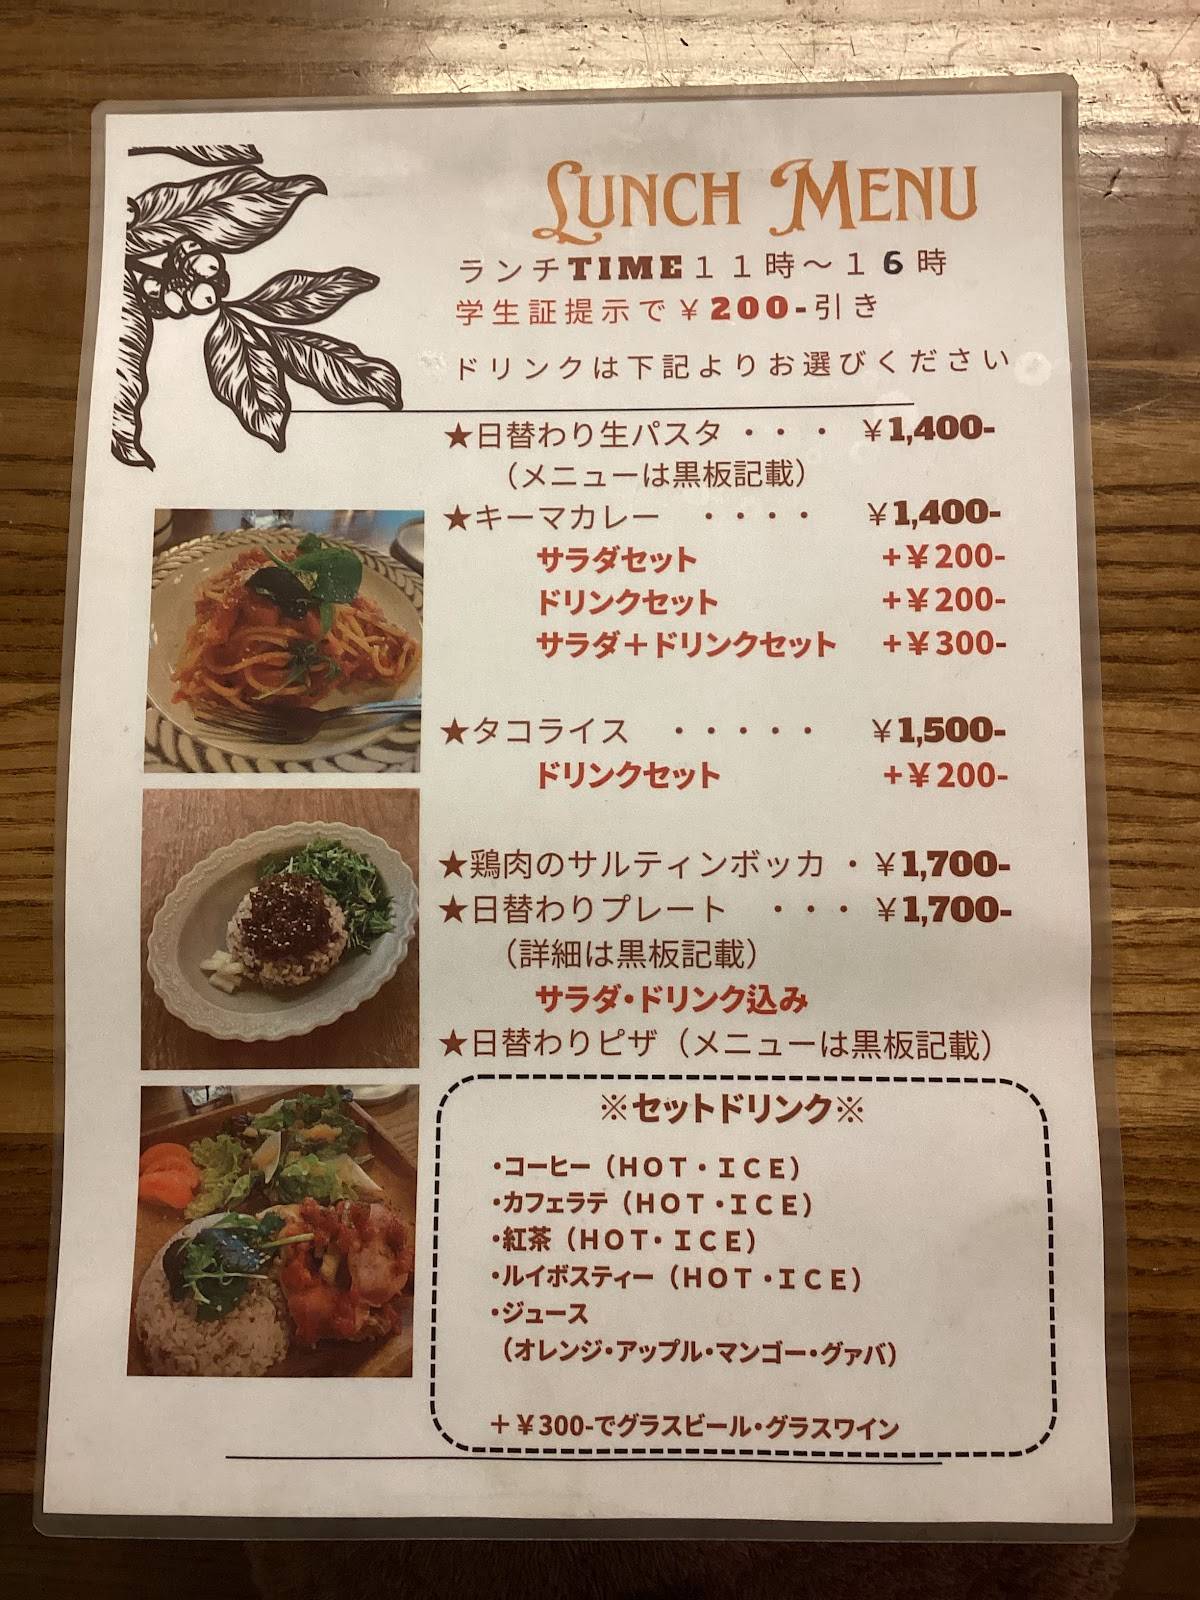 LUNCH MENU
ランチTIME11時～16時
学生証提示で￥200-引き
ドリンクは下記よりお選びください
★日替わり生パスタ・・・ ￥1,400-
（メニューは黒板記載）
★キーマカレー ・・・・ ￥1,400-
サラダセット +￥200-
ドリンクセット +￥200-
サラダ＋ドリンクセット +￥300-
★タコライス ・・・・・ ￥1,500-
ドリンクセット +￥200-
★鶏肉のサルティンボッカ・￥1,700-
★日替わりプレート ・・・ ￥1,700-
（詳細は黒板記載）
サラダ・ドリンク込み
★日替わりピザ（メニューは黒板記載）
※セットドリンク※
・コーヒー（HOT・ICE）
・カフェラテ（HOT・ICE）
・紅茶（HOT・ICE）
・ルイボスティー（HOT・ICE）
・ジュース
（オレンジ・アップル・マンゴー・グァバ）
＋￥300-でグラスビール・グラスワイン